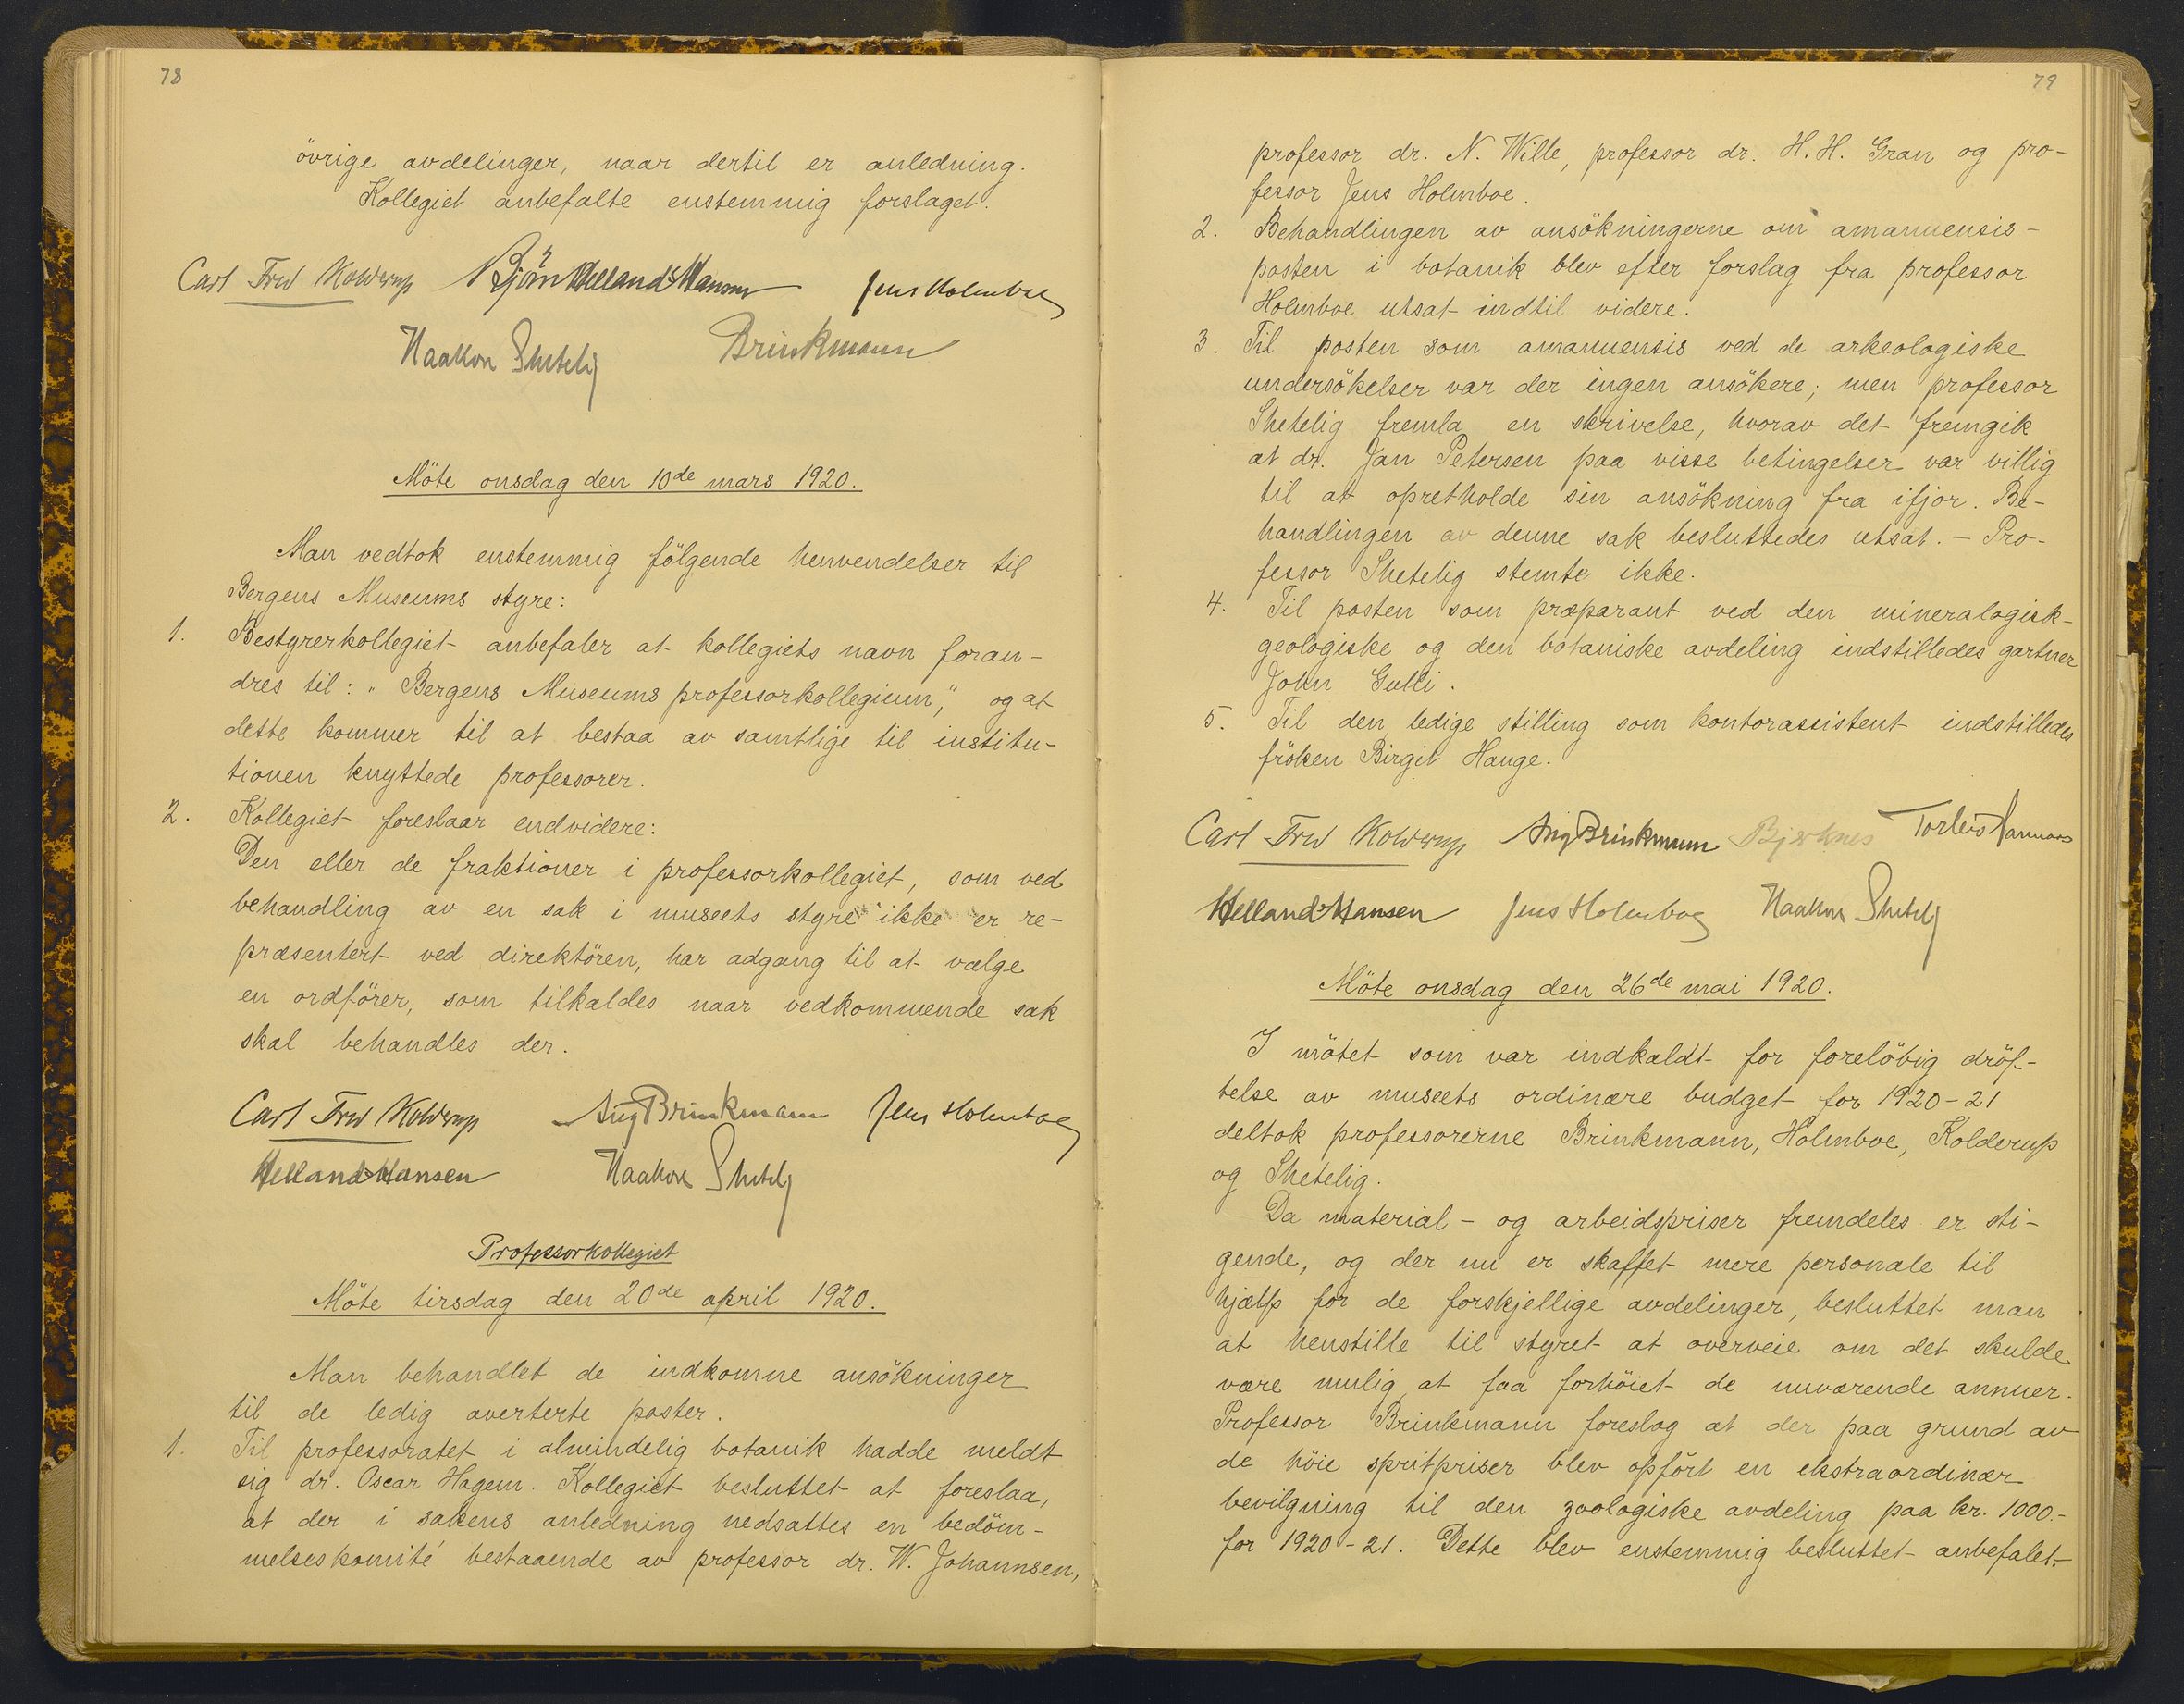 78
övrige avdelinger, naar dertil er anledning.
Kollegiet anbefalte enstemmig forslaget.
Carl Fred Kolderup Björn Helland-Hansen Jens Holmboe
Haakon Shetelig Brinkmann
Möte onsdag den 10de mars 1920.
Man vedtok enstemmig følgende henvendelser til
Bergens Museums styre:
1. Bestyrerkollegiet anbefaler at kollegiets navn foran-
dres til: "Bergens Museums professorkollegium", og at
dette kommer til at bestaa av samtlige til institu-
tionen knyttede professorer.
2. Kollegiet foreslaar endvidere:
Den eller de fraktioner i professorkollegiet, som ved
behandling av en sak i museets styre ikke er re-
præsentert ved direktören, har adgang til at vælge
en ordförer, som tilkaldes naar vedkommende sak
skal behandles der.
Carl Fred Kolderup Aug Brinkmann Jens Holmboe
Helland-Hansen Haakon Shetelig
Professorkollegiet
Möte tirsdag den 20de april 1920.
Man behandlet de indkomne ansökninger
til de ledig averterte poster.
1. Til professoratet i almindelig botanik hadde meldt
sig dr. Oscar Hagem. Kollegiet besluttet at foreslaa,
at der i sakens anledning nedsattes en bedöm-
melseskomité bestaaende av professor dr. W. Johannsen,
79
professor dr. N. Wille, professor dr. H. H. Gran og pro-
fessor Jens Holmboe.
2. Behandlingen av ansökningerne om amanuensis-
posten i botanik blev efter forslag fra professor
Holmboe utsat indtil videre.
3. Til posten som amanuensis ved de arkeologiske
undersökelser var der ingen ansökere; men professor
Shetelig fremla en skrivelse, hvorav det fremgik
at dr. Jan Petersen paa visse betingelser var villig
til at opretholde sin ansökning fra ifjor. Be-
handlingen av denne sak besluttedes utsat. - Pro-
fessor Shetelig stemte ikke.
4. Til posten som præparant ved den mineralogisk-
geologiske og den botaniske avdeling indstilledes gartner
John Gulli.
5. Til den ledige stilling som kontorassistent indstilledes
fröken Birgit Hauge.
Carl Fred Kolderup Aug Brinkmann Bjerknes Torleiv Hannaas
Helland-Hansen Jens Holmboe Haakon Shetelig
Möte onsdag den 26de mai 1920.
I mötet som var indkaldt for forelöbig dröf-
telse av museets ordinære budget for 1920-21
deltok professorerne Brinkmann, Holmboe, Kolderup
og Shetelig.
Da material- og arbeidspriser fremdeles er sti-
gende, og der nu er skaffet mere personale til
hjælp for de forskjellige avdelinger, besluttet man
at henstille til styret at overveie om det skulde
være mulig at faa forhöiet de nuværende annuer.
Professor Brinkmann foreslog at der paa grund av
de höie spritpriser blev opfört en ekstraordinær
bevilgning til den zoologiske avdeling paa kr. 1000.-
for 1920-21. Dette blev enstemmig besluttet anbefalet.